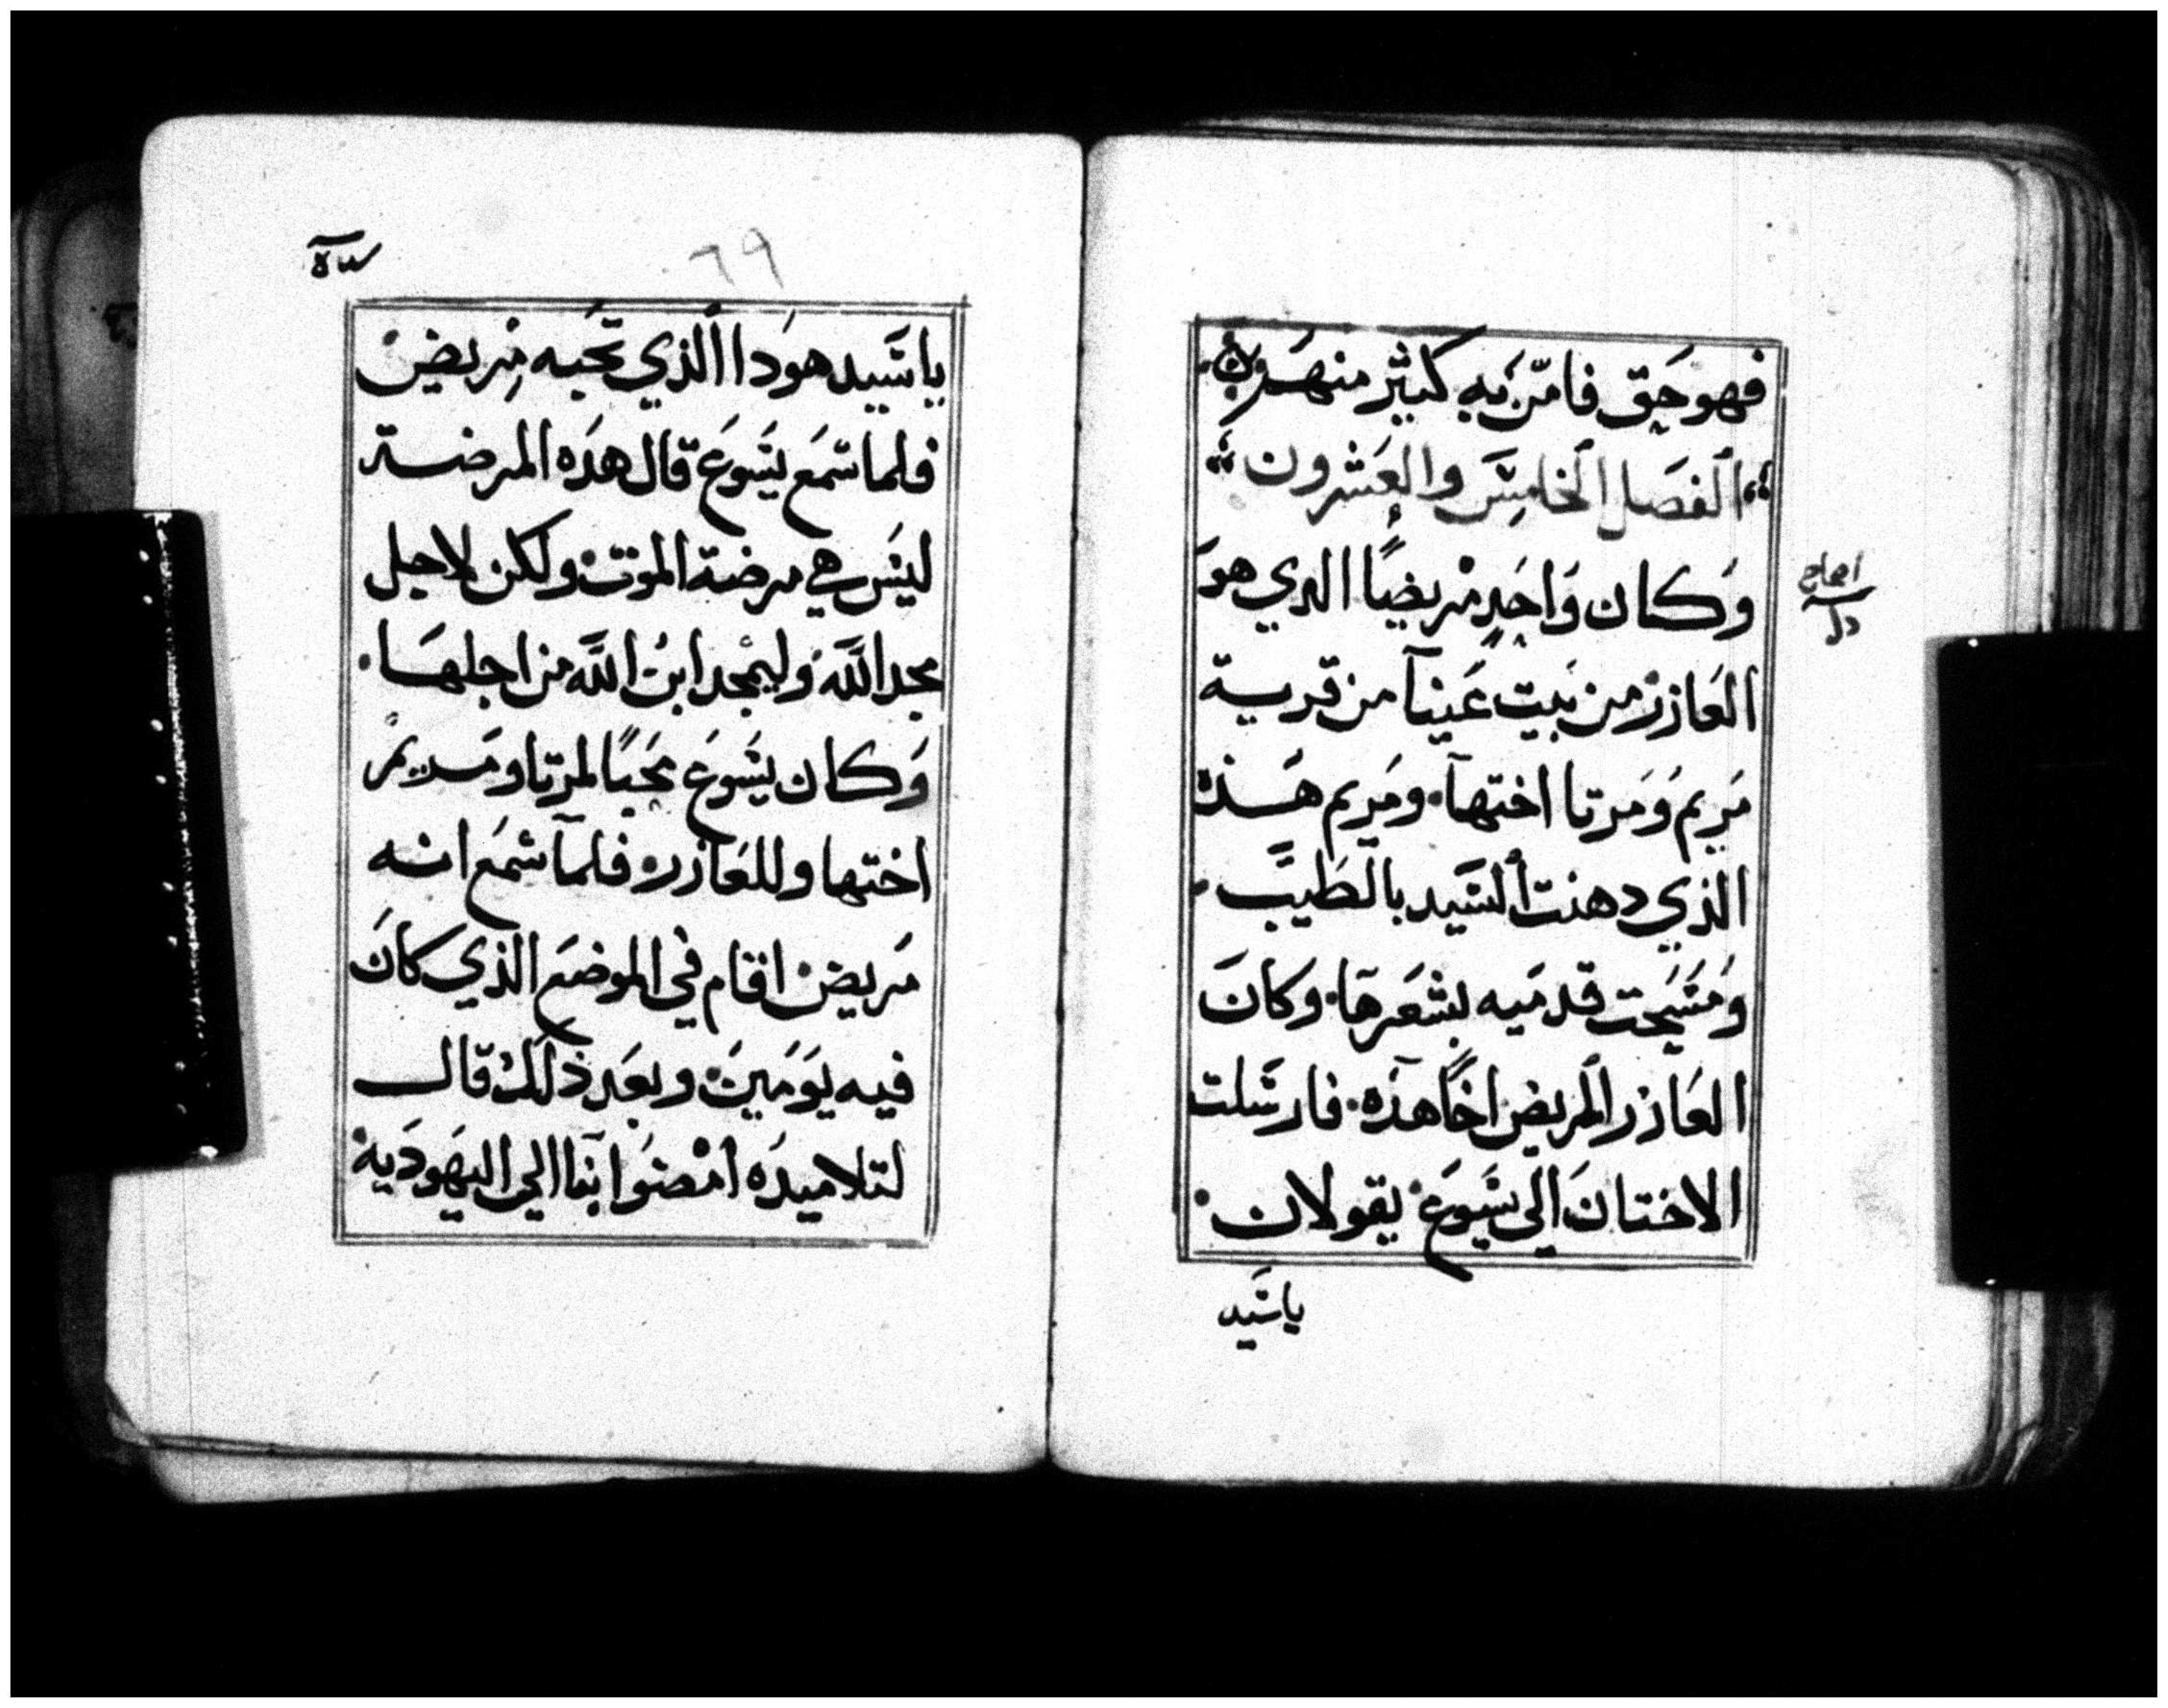 فهو حق فامن به كثير منهم
الفصل الخامس والعشرون
وكان واحد مريضًا الدي هو
العازر من بيت عنيا من قرية
مريم ومرتا اختها ومريم هذه
الذي دهنت السيد بالطيب
ومسحت قدميه بشعرها وكان
العازر المريض اخًا هذه فارسلت
الاختان الى يسوع يقولان
يا سيد
٦٩
يا سيد هودا الذي تحبه مريض
فلما سمع يسوع قال هده المرضة
ليس هي مرضة الموت ولكن لاجل
مجد الله وليمجد ابن الله من اجلها
وكان يسوع محبًا لمرتا ومريم
اختها وللعازر فلما سمع انه
مريض اقام في الموضع الذي كان
فيه يومين وبعد ذلك قال
لتلاميده امضوا بنا الي اليهودية